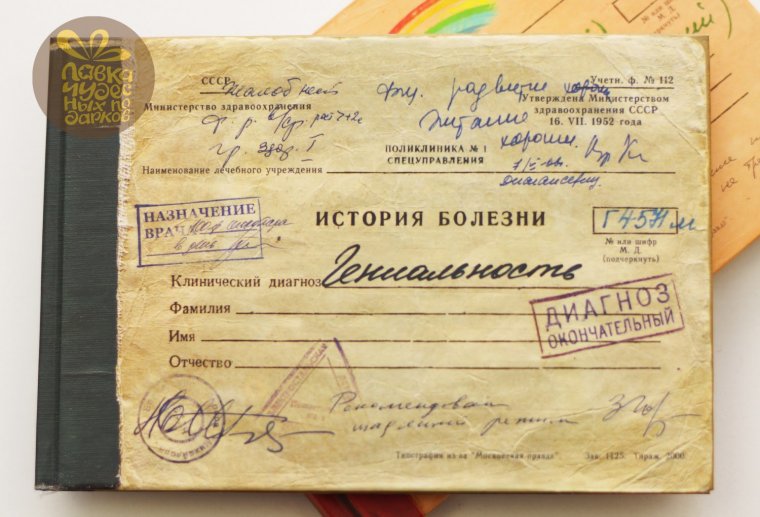 Лавка
чудес
ных по
дарков
СССР
Жалоб нет
Физ. развитие хорош
Учети. ф. № 112
Министерство здравоохранения
Утверждена Министерством
здравоохранения СССР
16. VII. 1952 года
Питание
хорошее
гр. здор. I
ПОЛИКЛИНИКА № 1
СПЕЦУПРАВЛЕНИЯ
Наименование лечебного учреждения
НАЗНАЧЕНИЕ
ВРАЧ
в день
ИСТОРИЯ БОЛЕЗНИ
Г4571 м
№ или шифр
М. Д.
(подчеркнуть)
Клинический диагноз Гениальность
Фамилия
Имя
Отчество
ДИАГНОЗ
ОКОНЧАТЕЛЬНЫЙ
Рекомендован
щадящий режим
Типография из-ва "Московская правда". Зак. 1125. Тираж. 2000.
№ или шифр
М. Д.
(подчеркнуть)